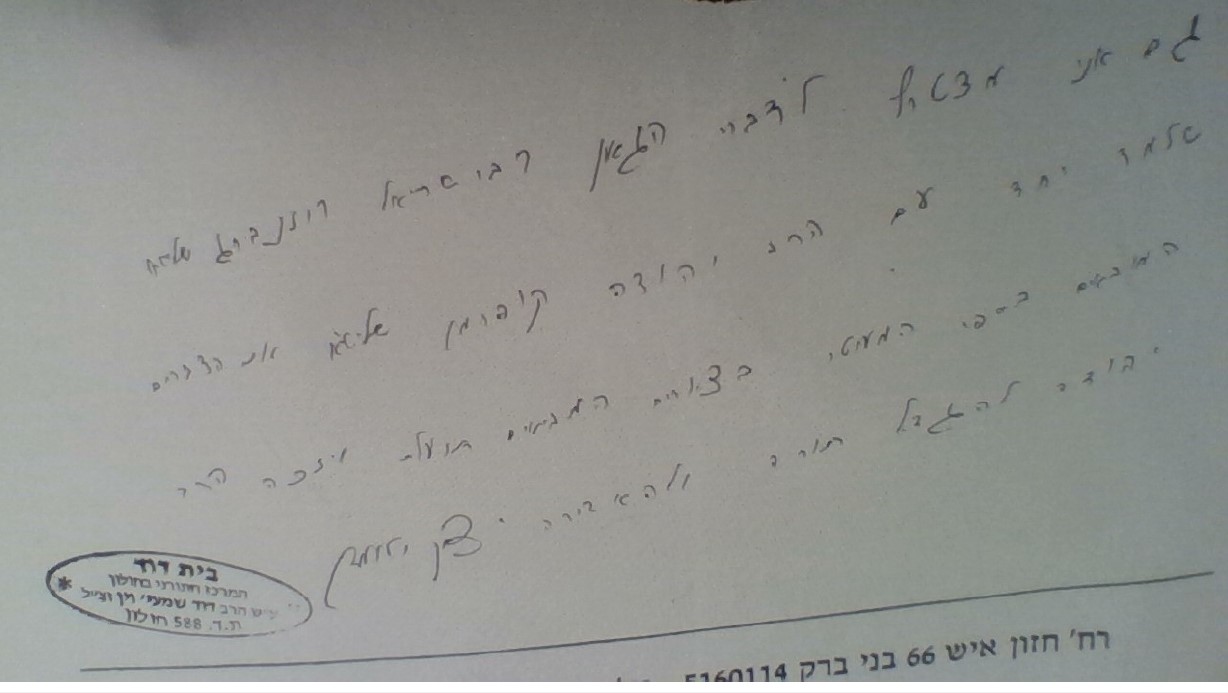 גם אני מצטרף לדברי הגאון רבי שריאל רוזנברג שליט"א
שלמד יחד עם הרב יהודה קופרמן שליט"א את הדברים
המובאים בספרי המעיטי בציורים המביאים תועלת ויזכה הרב
יהודה להגדיל תורה ולהאדירה יצחק
בית דוד
המרכז התורני בחולון
ע"ש הרב דוד שמעי' רין זצ"ל
ת.ד. 588 חולון
רח' חזון איש 66 בני ברק 5160114